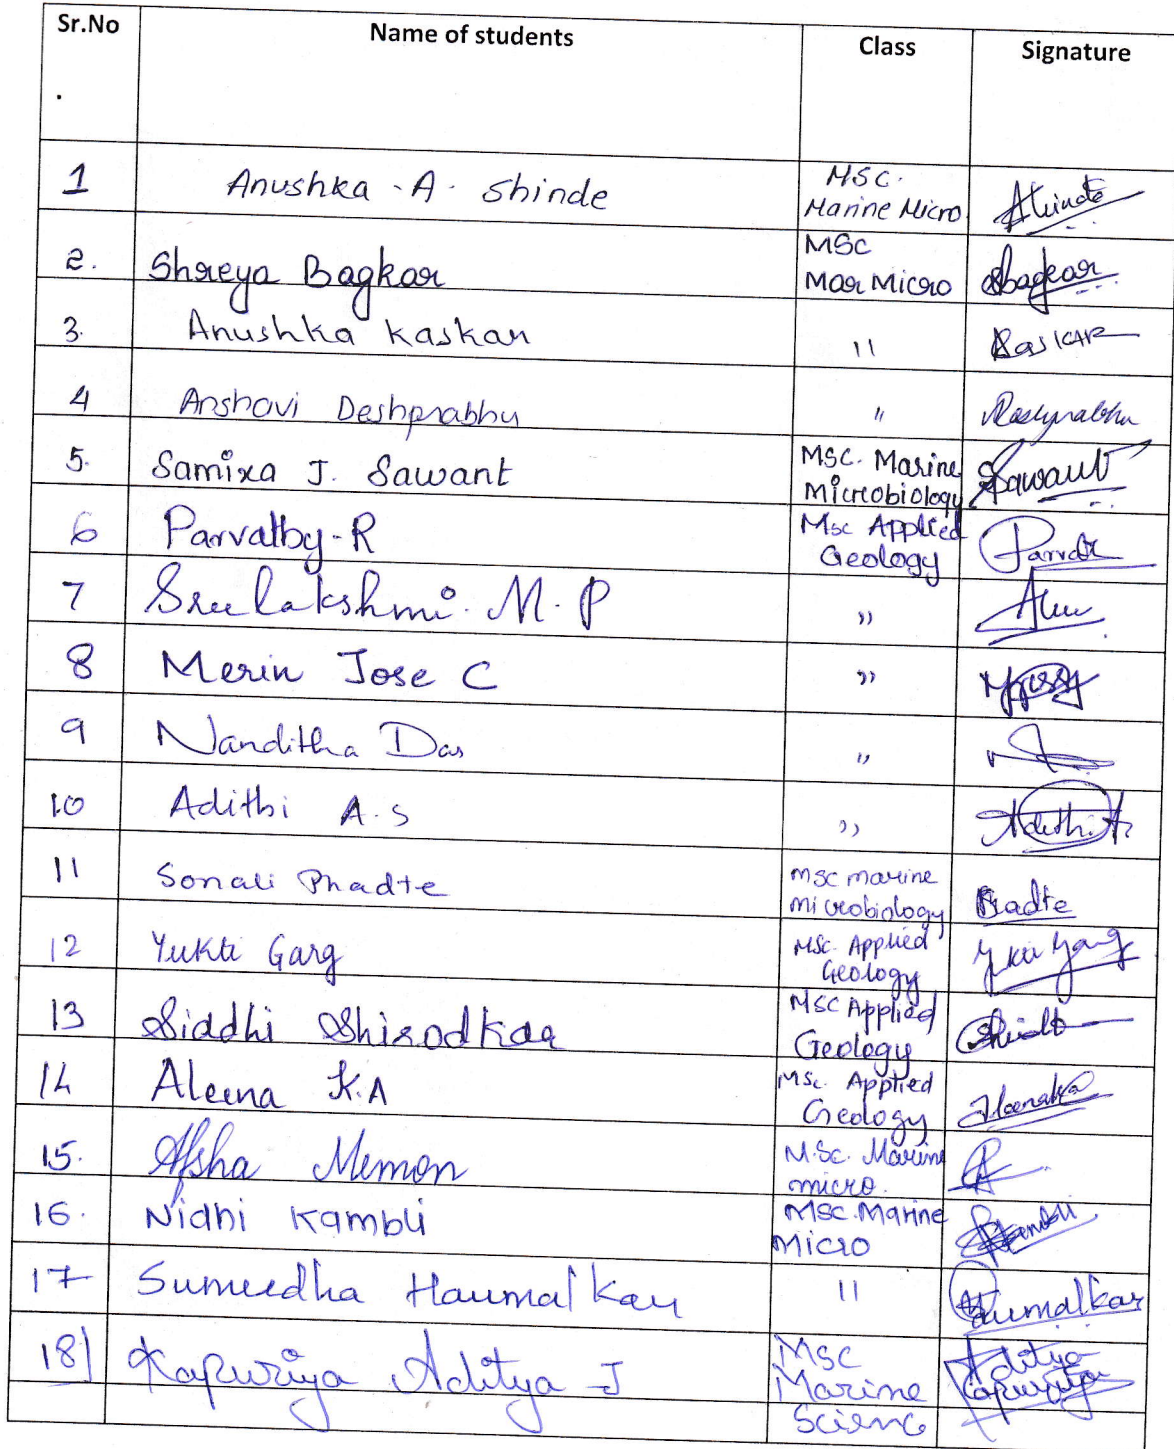 Sr.No Name of students Class Signature
.
1 Anushka . A . Shinde MSC. Marine Micro AShinde
2. Shreya Bagkar MSC Mar Micro SBagkar
3. Anushka Kaskar 11 KasKAR
4 Anshavi Deshprabhu " Deshprabhu
5. Samixa J. Sawant MSC. Marine Microbiology Sawant
6 Parvathy . R Msc Applied Geology
7 Sreelakshmi . M . P ,,
8 Merin Jose C ,,
9 Nanditha Das ,,
10 Adithi A . S ,, Adithi A
11 Sonali Phadte MSC marine microbiology Phadte
12 Yukti Garg MSc. Applied Geology
13 Siddhi Shirodkar MSC Applied Geology
14 Aleena K.A MSc. Applied Geology Aleenaka
15. Afsha Memon M.Sc. Marine micro.
16. Nidhi Kambli MSC. Marine Micro Kambli
17 Sumeedha Haumalkar 11 Haumalkar
18) Kapuriya Aditya J MSC Marine Science Aditya Kapuriya